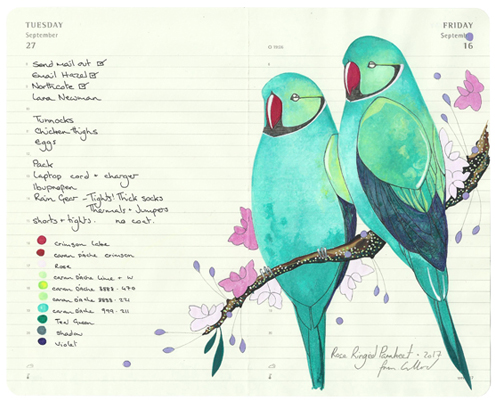 TUESDAY
September
27
Send mail out
Email Hazel
Northcote
Lana Newman
Tunnocks
Chicken thighs
eggs
Pack
Laptop card + charger
Ibuprofen
Rain Gear - Tights! Thick socks
Thermals + Jumpers
shorts + tights. no coat.
crimson lake
caran d'ache crimson
Rose
caran d'ache lime + w
caran d'ache 3888 - 470
caran d'ache 3888 - 231
caran d'ache 999 - 211
Teal Green
Shadow
Violet
FRIDAY
September
16
Rose Ringed Parakeet - 2017
from